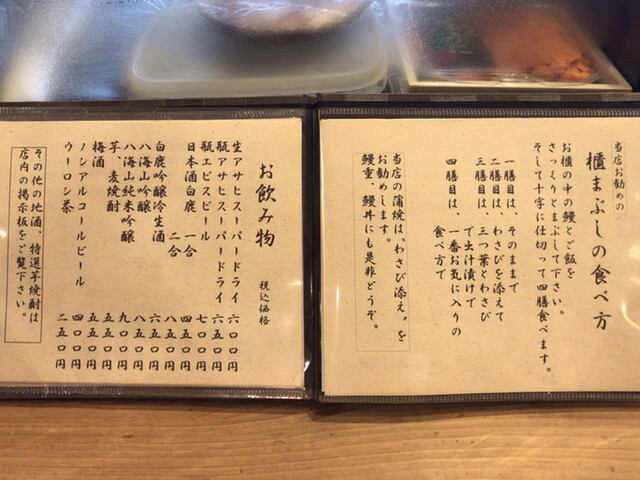 当店お勧めの
櫃まぶしの食べ方
お櫃の中の鰻とご飯を
さっくりとまぶして下さい。
そして十字に仕切って四膳食べます。
一膳目は、そのままで
二膳目は、わさびを添えて
三膳目は、三つ葉とわさび
で出汁漬けで
四膳目は、一番お気に入りの
食べ方で
当店の蒲焼は、わさび添え〟を
お勧めします。
鰻重、鰻丼にも是非どうぞ。
お飲み物 税込価格
生アサヒスーパードライ 六〇〇円
瓶アサヒスーパードライ 六五〇円
瓶エビスビール 七〇〇円
日本酒白鹿 一合 四五〇円
二合 八五〇円
白鹿吟醸冷生酒 六五〇円
八海山吟醸 八五〇円
八海山純米吟醸 九〇〇円
芋、麦焼酎 五五〇円
梅酒 五五〇円
ノンアルコールビール 四〇〇円
ウーロン茶 二五〇円
その他の地酒、特選芋焼酎は
店内の掲示板をご覧下さい。